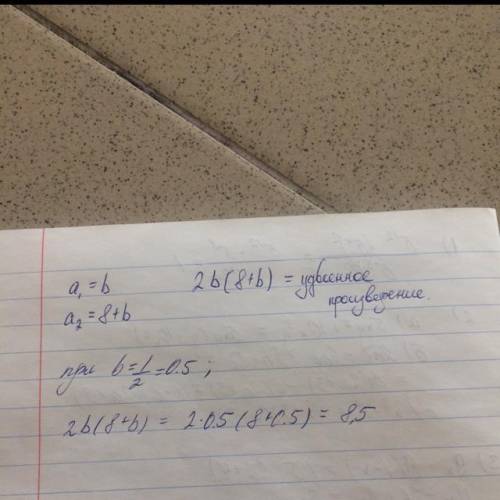 a₁ = b
2b(8+b) = удвоенное произведение.
a₂ = 8+b
при b = 1/2 = 0.5 ;
2b(8+b) = 2·0.5(8+0.5) = 8,5